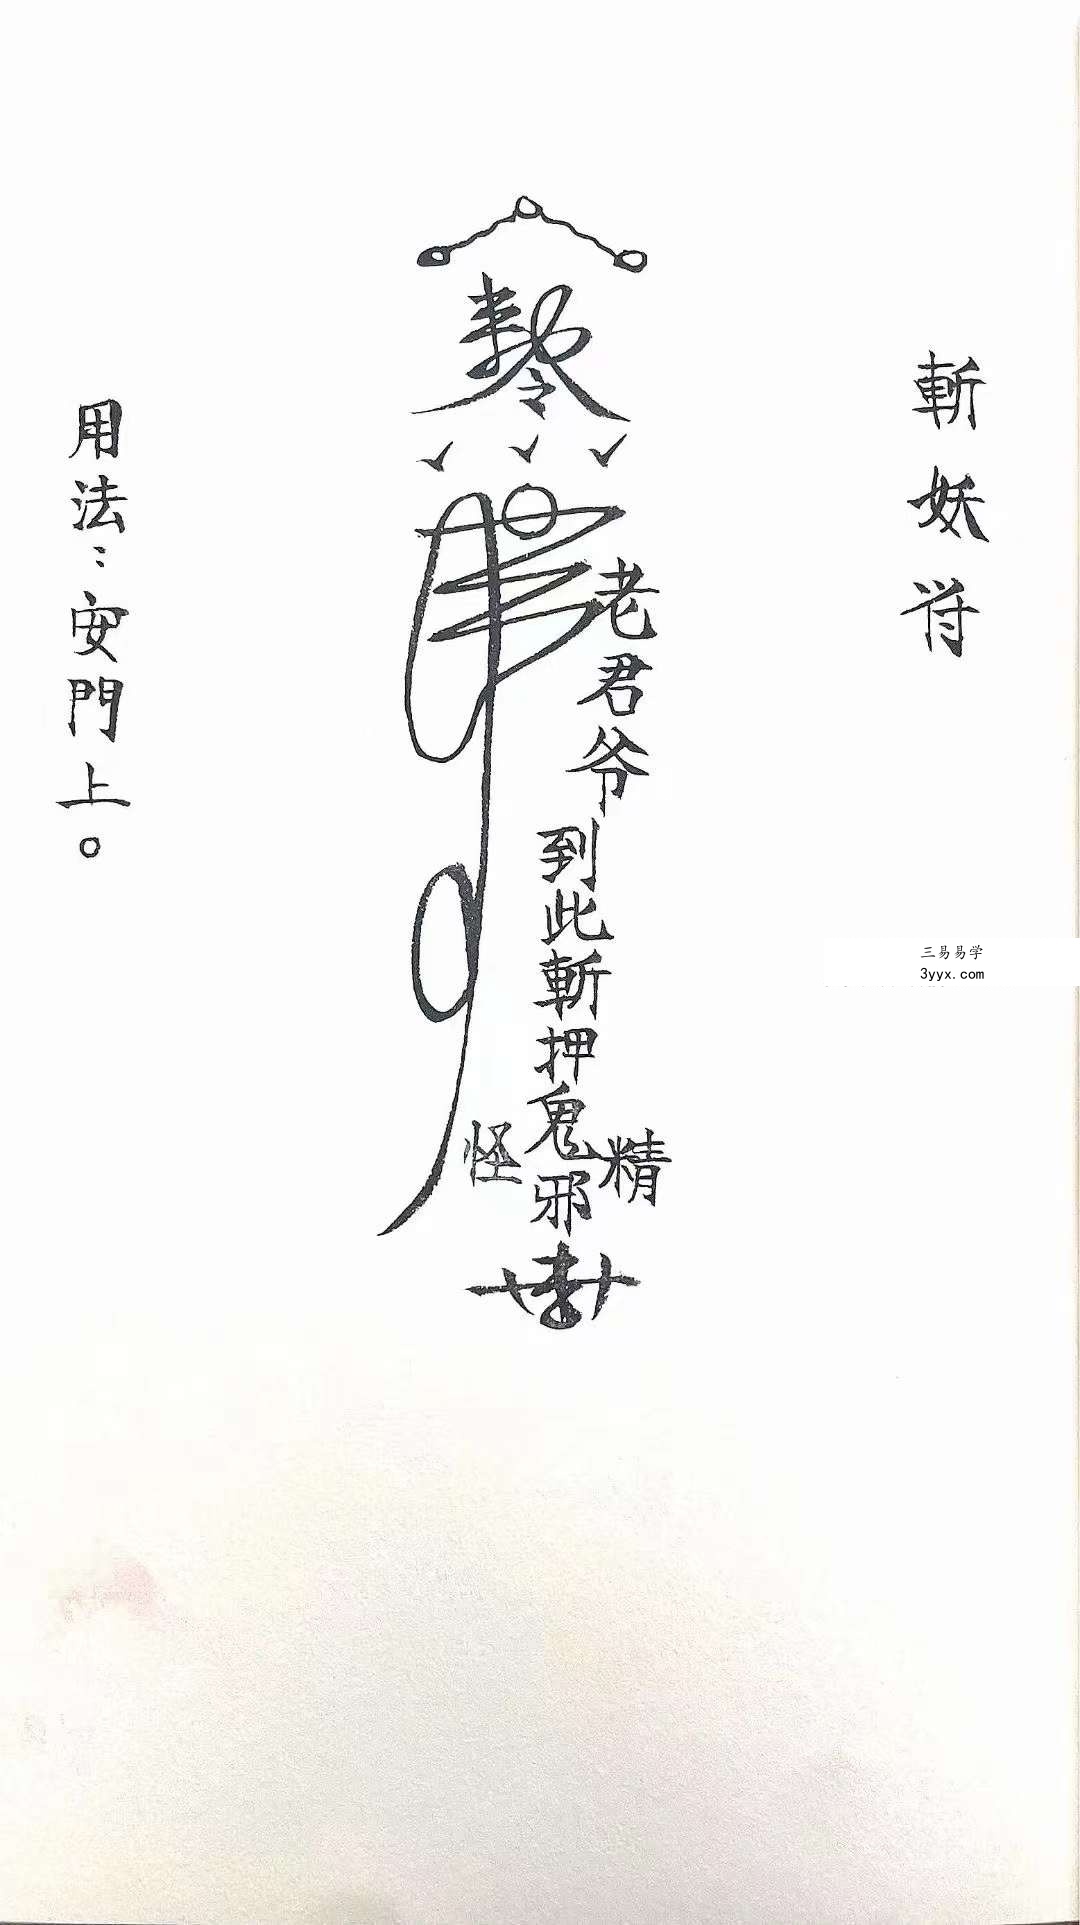 斬妖符
敕令
老君爷到此斬押鬼邪
精
怪
用法：安門上。
三易易学
3yyx.com